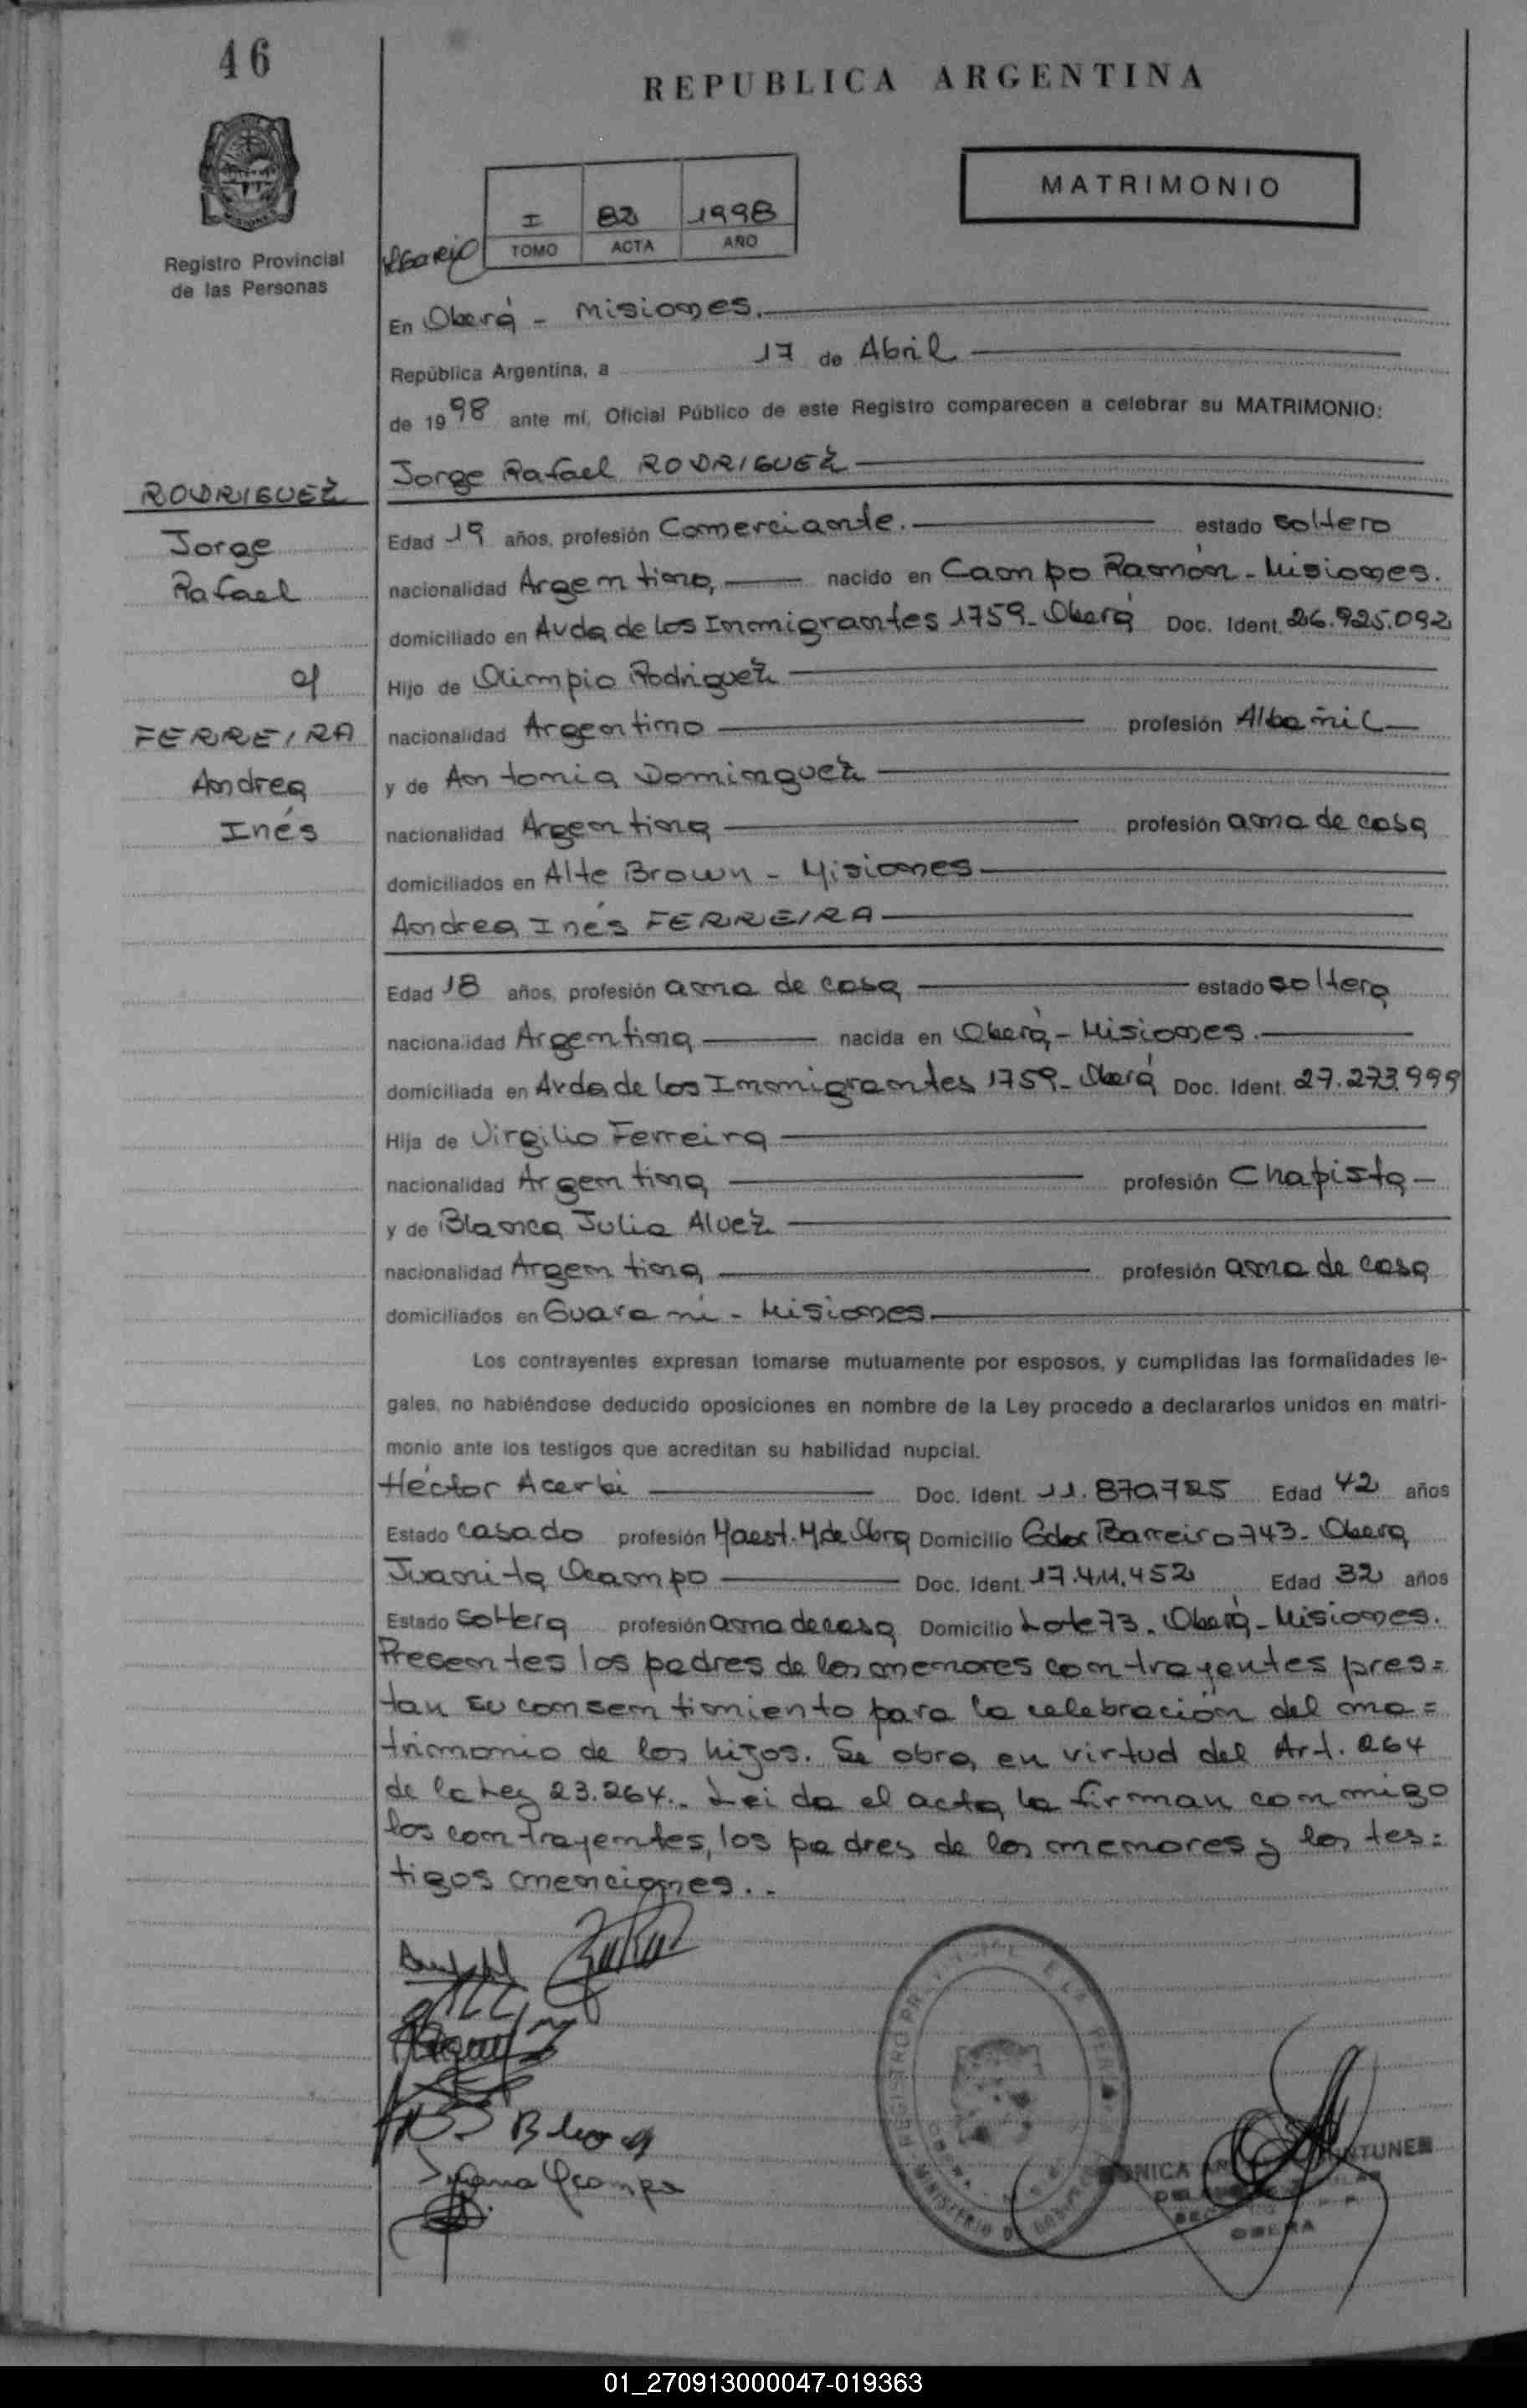 46
REPUBLICA ARGENTINA
MATRIMONIO
I 82 1998
TOMO ACTA AÑO
Registro Provincial
de las Personas
En Oberá - Misiones.
República Argentina, a 17 de Abril
de 1998 ante mí, Oficial Público de este Registro comparecen a celebrar su MATRIMONIO:
Jorge Rafael RODRIGUEZ
RODRIGUEZ
Jorge
Rafael
c/
FERREIRA
Andrea
Inés
Edad 19 años, profesión Comerciante. estado soltero
nacionalidad Argentina, nacido en Campo Ramón - Misiones.
domiciliado en Avda de los Inmigrantes 1759 - Oberá Doc. Ident. 26.925.092
Hijo de Olimpio Rodriguez
nacionalidad Argentino profesión Albañil
y de Antonia Dominguez
nacionalidad Argentina profesión ama de casa
domiciliados en Alte Brown - Misiones
Andrea Inés FERREIRA
Edad 18 años, profesión ama de casa estado soltera
nacionalidad Argentina nacida en Oberá - Misiones.
domiciliada en Avda de los Inmigrantes 1759 - Oberá Doc. Ident. 27.273.999
Hija de Virgilio Ferreira
nacionalidad Argentina profesión Chapista
y de Blanca Julia Alvez
nacionalidad Argentina profesión ama de casa
domiciliados en Guaraní - Misiones
Los contrayentes expresan tomarse mutuamente por esposos, y cumplidas las formalidades le-
gales, no habiéndose deducido oposiciones en nombre de la Ley procedo a declararlos unidos en matri-
monio ante los testigos que acreditan su habilidad nupcial.
Héctor Acerbi Doc. Ident. 11.870.725 Edad 42 años
Estado casado profesión Maest. M de Obra Domicilio Gdor Barreiro 743 - Obera
Juanita Ocampo Doc. Ident. 17.411.452 Edad 32 años
Estado soltera profesión ama de casa Domicilio Lote 73 - Oberá - Misiones.
Presentes los padres de los menores contrayentes pres=
tan su consentimiento para la celebración del ma=
trimonio de los hijos. Se obra en virtud del Art. 264
de la Ley 23.264.- Leida el acta, la firman conmigo
los contrayentes, los padres de los menores y los tes=
tigos menciones..
REGISTRO PROVINCIAL DE LAS PERSONAS
MINISTERIO DE GOBIERNO
OBERA
01_270913000047-019363